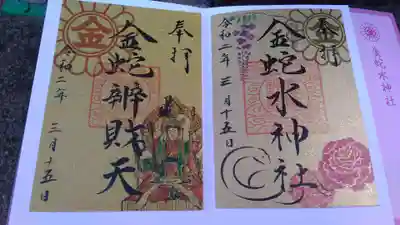 奉拝
金蛇水神社
令和二年 三月十五日
金蛇水神社
奉拝
金
金蛇辨財天
令和二年
三月十五日